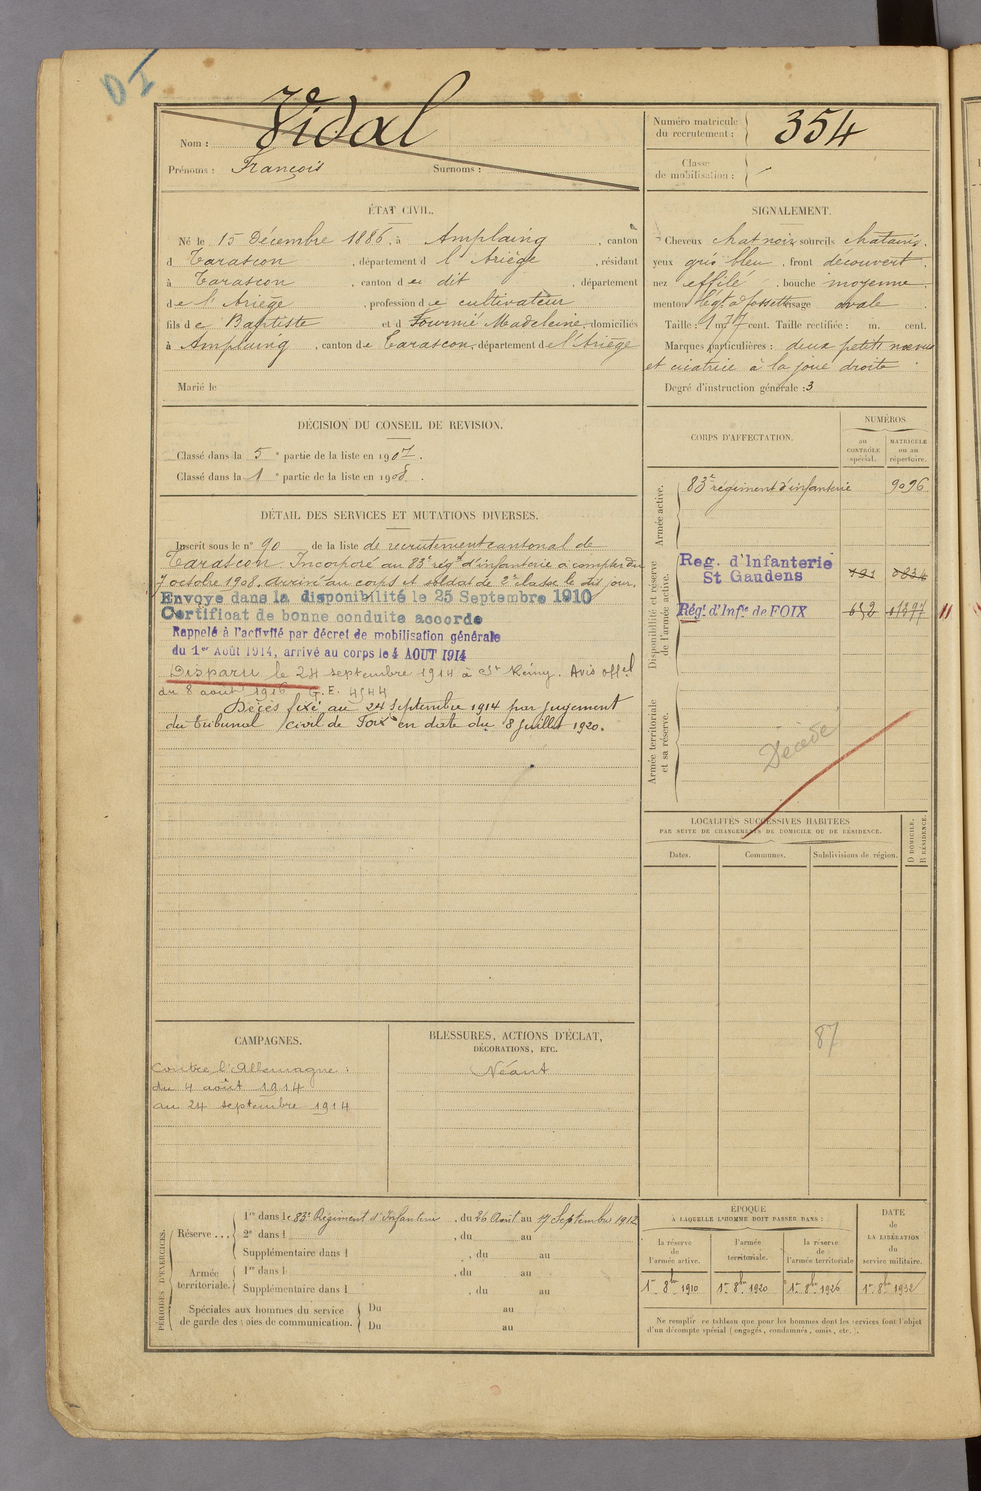 Nom : Vidal
Prénoms : François Surnoms :
Numéro matricule du recrutement : 354
Classe de mobilisation :
ÉTAT CIVIL.
Né le 15 Décembre 1886, à Amplaing, canton
d Tarascon, département d l'Ariège, résidant
à Tarascon, canton de dit, département
de l'Ariège, profession de cultivateur
fils de Baptiste et d Fournié Madeleine, domiciliés
à Amplaing, canton de Tarascon, département de l'Ariège
Marié le
SIGNALEMENT.
Cheveux chat noirs sourcils chatains.
yeux gris bleu, front découvert.
nez effilé, bouche moyenne.
menton visage ovale
Taille : 1 m. 77 cent. Taille rectifiée : m. cent.
Marques particulières : deux petits nævus
et cicatrice à la joue droite
Degré d'instruction générale : 3
DÉCISION DU CONSEIL DE REVISION.
Classé dans la 5e partie de la liste en 1907.
Classé dans la 1e partie de la liste en 1908.
DÉTAIL DES SERVICES ET MUTATIONS DIVERSES.
Inscrit sous le n° 90 de la liste de recrutement cantonal de
Tarascon. Incorporé au 83e régt d'infanterie à compter du
7 octobre 1908. Arrivé au corps et soldat de 2e classe le dit jour.
Envoyé dans la disponibilité le 25 Septembre 1910
Certificat de bonne conduite accordé
Rappelé à l'activité par décret de mobilisation générale
du 1er Août 1914, arrivé au corps le 4 AOUT 1914
Disparu le 24 septembre 1914 à St Rémy. Avis offel
du 8 août 1916 G.E. 4544
Décès fixé au 24 Septembre 1914 par jugement
du Tribunal civil de Foix en date du 8 juillet 1920.
CORPS D'AFFECTATION.
NUMÉROS.
au CONTRÔLE spécial.
MATRICULE ou au répertoire.
Armée active.
83e régiment d'infanterie 9096
Disponibilité et réserve de l'armée active.
Reg. d'Infanterie
St Gaudens
Régt d'Infie de FOIX
11
Armée territoriale et sa réserve.
Décédé
LOCALITÉS SUCCESSIVES HABITÉES
PAR SUITE DE CHANGEMENTS DE DOMICILE OU DE RÉSIDENCE.
Dates. Communes. Subdivisions de région.
D DOMICILE. R RÉSIDENCE.
87
CAMPAGNES.
Contre l'Allemagne :
du 4 août 1914
au 24 septembre 1914
BLESSURES, ACTIONS D'ÉCLAT,
DÉCORATIONS, ETC.
Néant
PÉRIODES D'EXERCICES.
Réserve...
1re dans le 83e Régiment d'Infanterie, du 26 Août au 17 Septembre 1912
2e dans l , du au
Supplémentaire dans l , du au
Armée territoriale.
1re dans l , du au
Supplémentaire dans l , du au
Spéciales aux hommes du service
de garde des voies de communication.
Du au
Du au
ÉPOQUE
À LAQUELLE L'HOMME DOIT PASSER DANS :
la réserve de l'armée active.
l'armée territoriale.
la réserve de l'armée territoriale
DATE de LA LIBÉRATION du service militaire.
1er 8bre 1910
1er 8bre 1920
1er 8bre 1926
1er 8bre 1932
Ne remplir ce tableau que pour les hommes dont les services font l'objet
d'un décompte spécial (engagés, condamnés, omis, etc.).